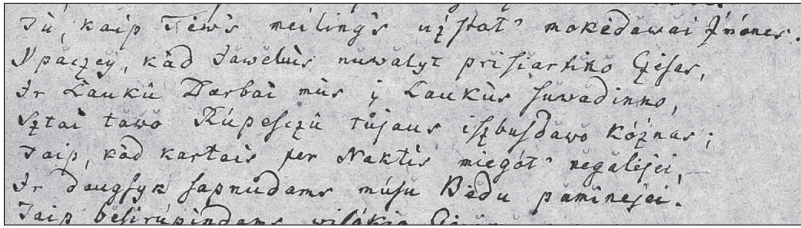 Tù, kaip Tėws meilings użstot' mokėdawai Żmónes.
Ypaczey, kàd Jawelùs nuwalyt prisiartino Czėsas,
Ir Laukû Darbai mùs į Laukùs suwadinno,
Sztai tawo Rúpesczû tûjaus iszbusdawo kóżnas;
Taip, kàd kartais per Naktìs miegót' negalėjei,
Ir daugsyk sapnûdams músu Bėdu paminejei.
Taip besirúpindams